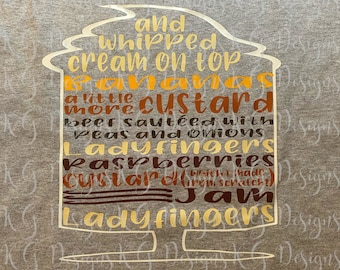 and
whipped
cream on top
Bananas
a little
more custard
beef sauteed with
peas and onions
Ladyfingers
Raspberries
custard (which I made
from scratch)
Jam
Ladyfingers